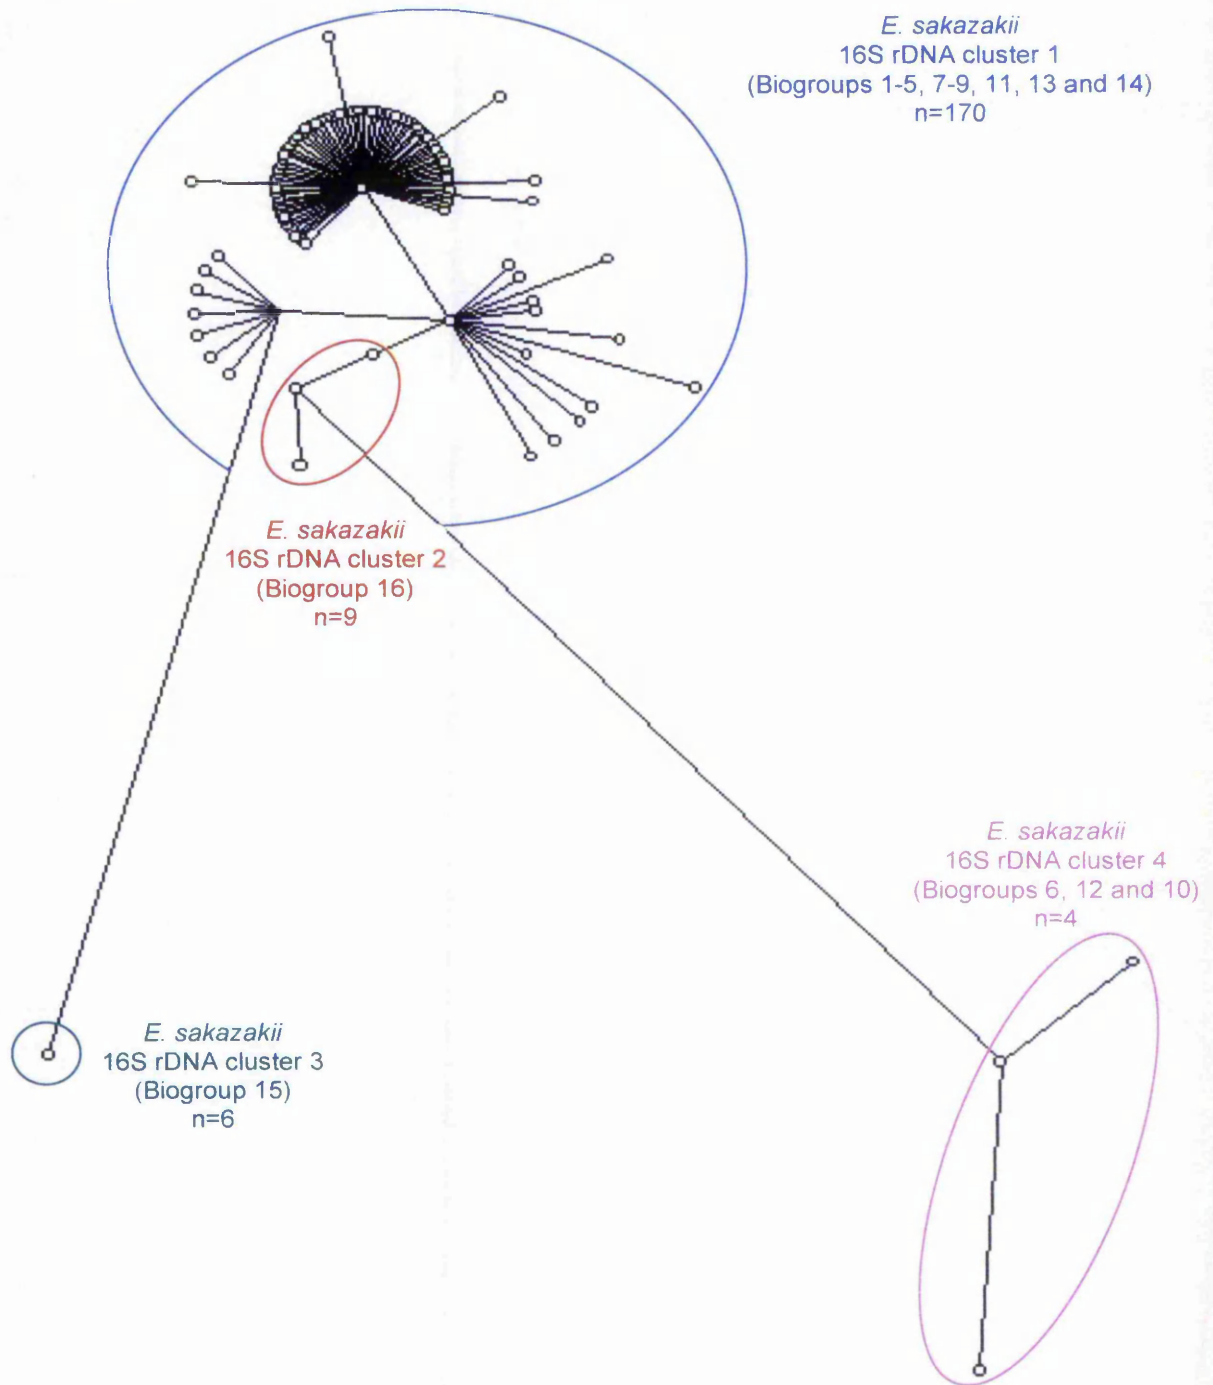 E. sakazakii
16S rDNA cluster 1
(Biogroups 1-5, 7-9, 11, 13 and 14)
n=170
E. sakazakii
16S rDNA cluster 2
(Biogroup 16)
n=9
E. sakazakii
16S rDNA cluster 4
(Biogroups 6, 12 and 10)
n=4
E. sakazakii
16S rDNA cluster 3
(Biogroup 15)
n=6